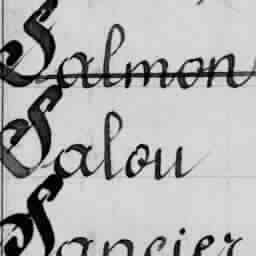 Salmon
Salou
Sancier